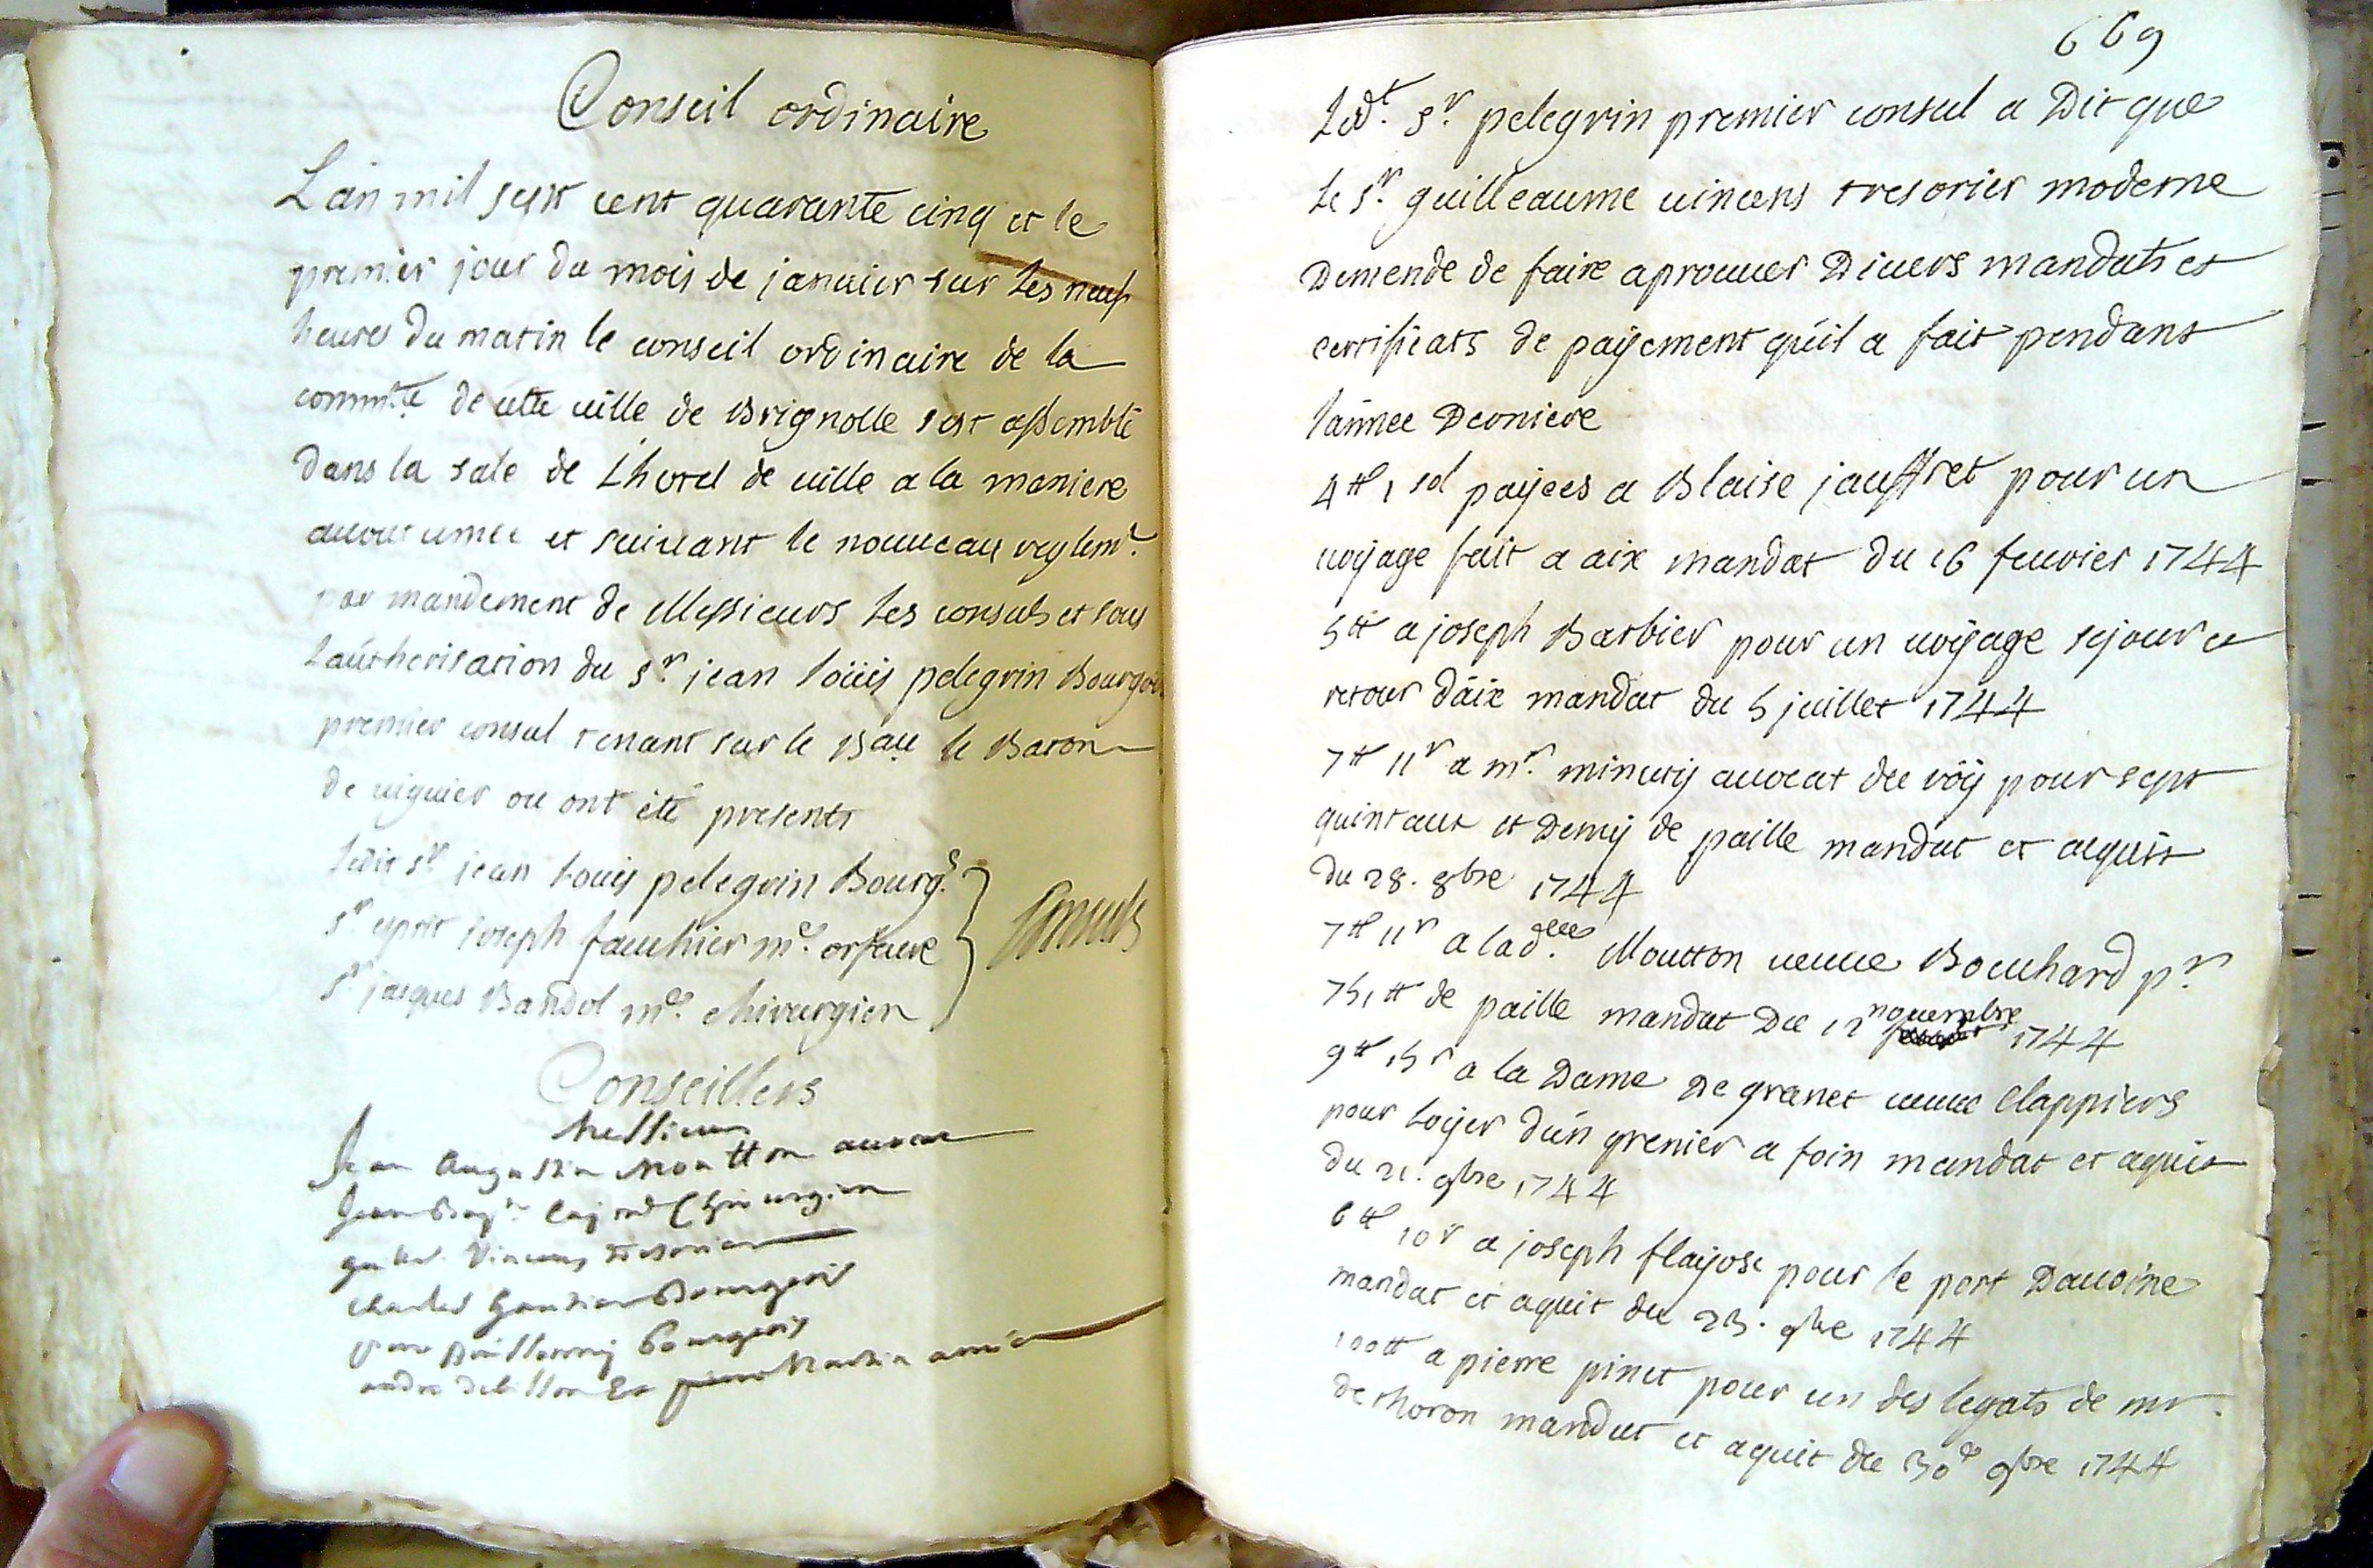 Conseil ordinaire
L'an mil sept cent quarante cinq et le
premier jour du mois de janvier sur les neuf
heures du matin le conseil ordinaire de la
comm.te de cette ville de Brignolle s'est assemblé
dans la sale de L'hotel de ville a la maniere
accoutumée et suivant le nouveau reglem.t
par mandement de Messieurs les consuls et sous
l'autherisation du s.r jean loüis pelegrin Bourgois
premier consul tenant sur le Bau le Baton
de viguier ou ont été presents
ledit s.r jean louis pelegrin Bourg.s
s.r esprit joseph fauchier m.e orfeuve
s.r jacques Bandol m.e chirurgien
Consuls
Conseillers
Messieurs
Jean Augustin Moutton avocat
Jean Bap.te Chirurgien
Vincens Tresorier
Charles Gautier Bourgeois
Guillermy Bourgeois
andre debillon Et pierre Martin
669
Led.t s.r pelegrin premier consul a Dit que
le s.r guilleaume vincens tresorier moderne
Demende de faire aprouver Divers mandats et
certificats de payement qu'il a fait pendant
l'année Derniere
4tt 1 sol payees a Blaise jauffret pour un
voyage fait a aix mandat du 16 fevrier 1744
5tt a joseph Barbier pour un voyage sejour et
retour d'aix mandat du 5 juillet 1744
7tt 11s a mr. minuty avocat du röy pour sept
quintaux et Demy de paille mandat et acquit
du 28. 8bre 1744
7tt 11s a lad.elle Moutton veuve Bouchard p.r
751tt de paille mandat Du 12 novembre 1744
9tt 15s a la Dame De granet veuve Clappiers
pour loyer d'un grenier a foin mandat et aquit
du 21. 9bre 1744
6tt 10s a joseph flayosc pour le port Davoine
mandat et aquit du 23. 9bre 1744
100tt a pierre pinet pour un des legats de mr.
de thoron mandat et aquit du 30e 9bre 1744